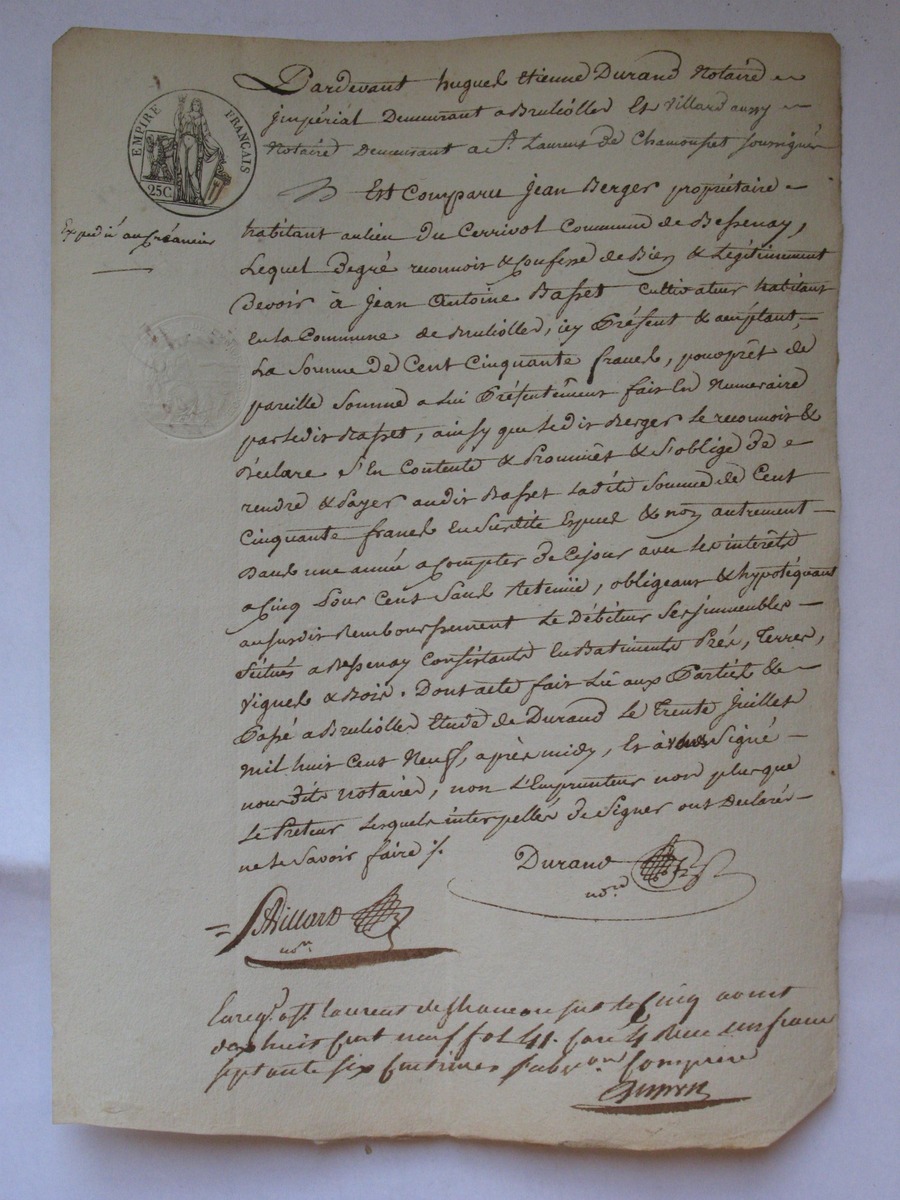 EMPIRE FRANÇAIS
25C
Expedié au Créancier
Pardevant hugues Etienne Durand Notaire
jmpérial Demeurant a Brulioller Et Villard aussy
Notaire Demeurant a St. Laurent De Chamousset soussignés
Est Comparu Jean Berger propriétaire
habitant au lieu Du Cerrivol Commune de Bessenay,
Lequel Degré reconnoit & Confesse de Bien & Légitimement
Devoir à Jean Antoine Basset Cultivateur habitant
En la Commune de Brulioller, icy Présent & aceptant,
La Somme De Cent Cinquante francs, pour prêt de
pareille Somme a Lui Présentêment fait En Numeraire
par Ledit Basset, ainsy que Ledit Berger Le reconnoit &
Déclare S'En Contente & Promêt & S'oblige De
rendre & Payer audit Basset Ladite Somme de Cent
Cinquante francs En Susdite Espece & non autrement
Dans une année a Compter De Cejour avec Les interêts
a Cinq Pour Cent Sans Retenüe, obligeant & hypotéquant
au Susdit Remboursement Le Débiteur Ses jmmeubles
Situés a Bessenay Consistants En Batiments Prés, Terres,
Vignes & Bois. Dont acte fait Lu aux Parties &
Passé a Brulioller Etude de Durand Le Trente Juillet
mil huit Cent Neuf, après midy, Et avons Signé
nousdits notaires, non L'Emprunteur non plus que
Le Prêteur Lesquels interpellés De Signer ont Déclarés
ne Le Savoir faire %
Durand
nore
Villard
nore
Enregt. a St. Laurent de Chamousset le Cinq aout
dix huit Cent neuf fol 41. Reçu un franc
septante six Centimes Subvon. Comprise